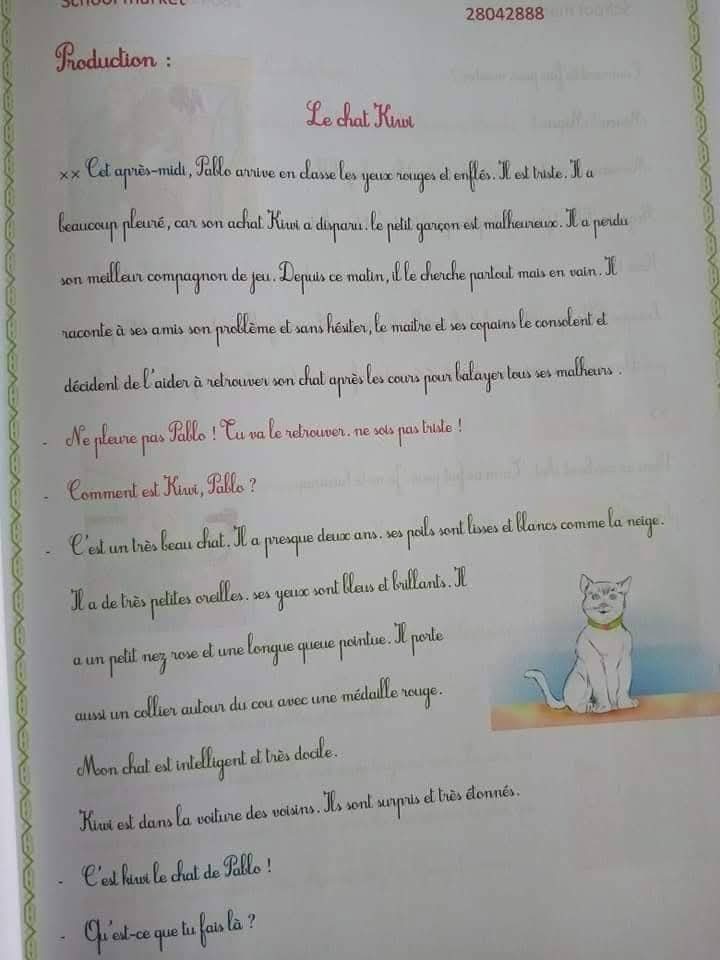 School market
28042888
Production :
Le chat Kiwi
×× Cet après-midi, Pablo arrive en classe les yeux rouges et enflés. Il est triste. Il a
beaucoup pleuré, car son achat Kiwi a disparu. le petit garçon est malheureux. Il a perdu
son meilleur compagnon de jeu. Depuis ce matin, il le cherche partout mais en vain. Il
raconte à ses amis son problème et sans hésiter, le maitre et ses copains le consolent et
décident de l'aider à retrouver son chat après les cours pour balayer tous ses malheurs .
- Ne pleure pas Pablo ! Tu va le retrouver. ne sois pas triste !
- Comment est Kiwi, Pablo ?
- C'est un très beau chat. Il a presque deux ans. ses poils sont lisses et blancs comme la neige.
Il a de très petites oreilles. ses yeux sont bleus et brillants. Il
a un petit nez rose et une longue queue pointue. Il porte
aussi un collier autour du cou avec une médaille rouge.
Mon chat est intelligent et très docile.
Kiwi est dans la voiture des voisins. Ils sont surpris et très étonnés.
- C'est kiwi le chat de Pablo !
- Qu'est-ce que tu fais là ?